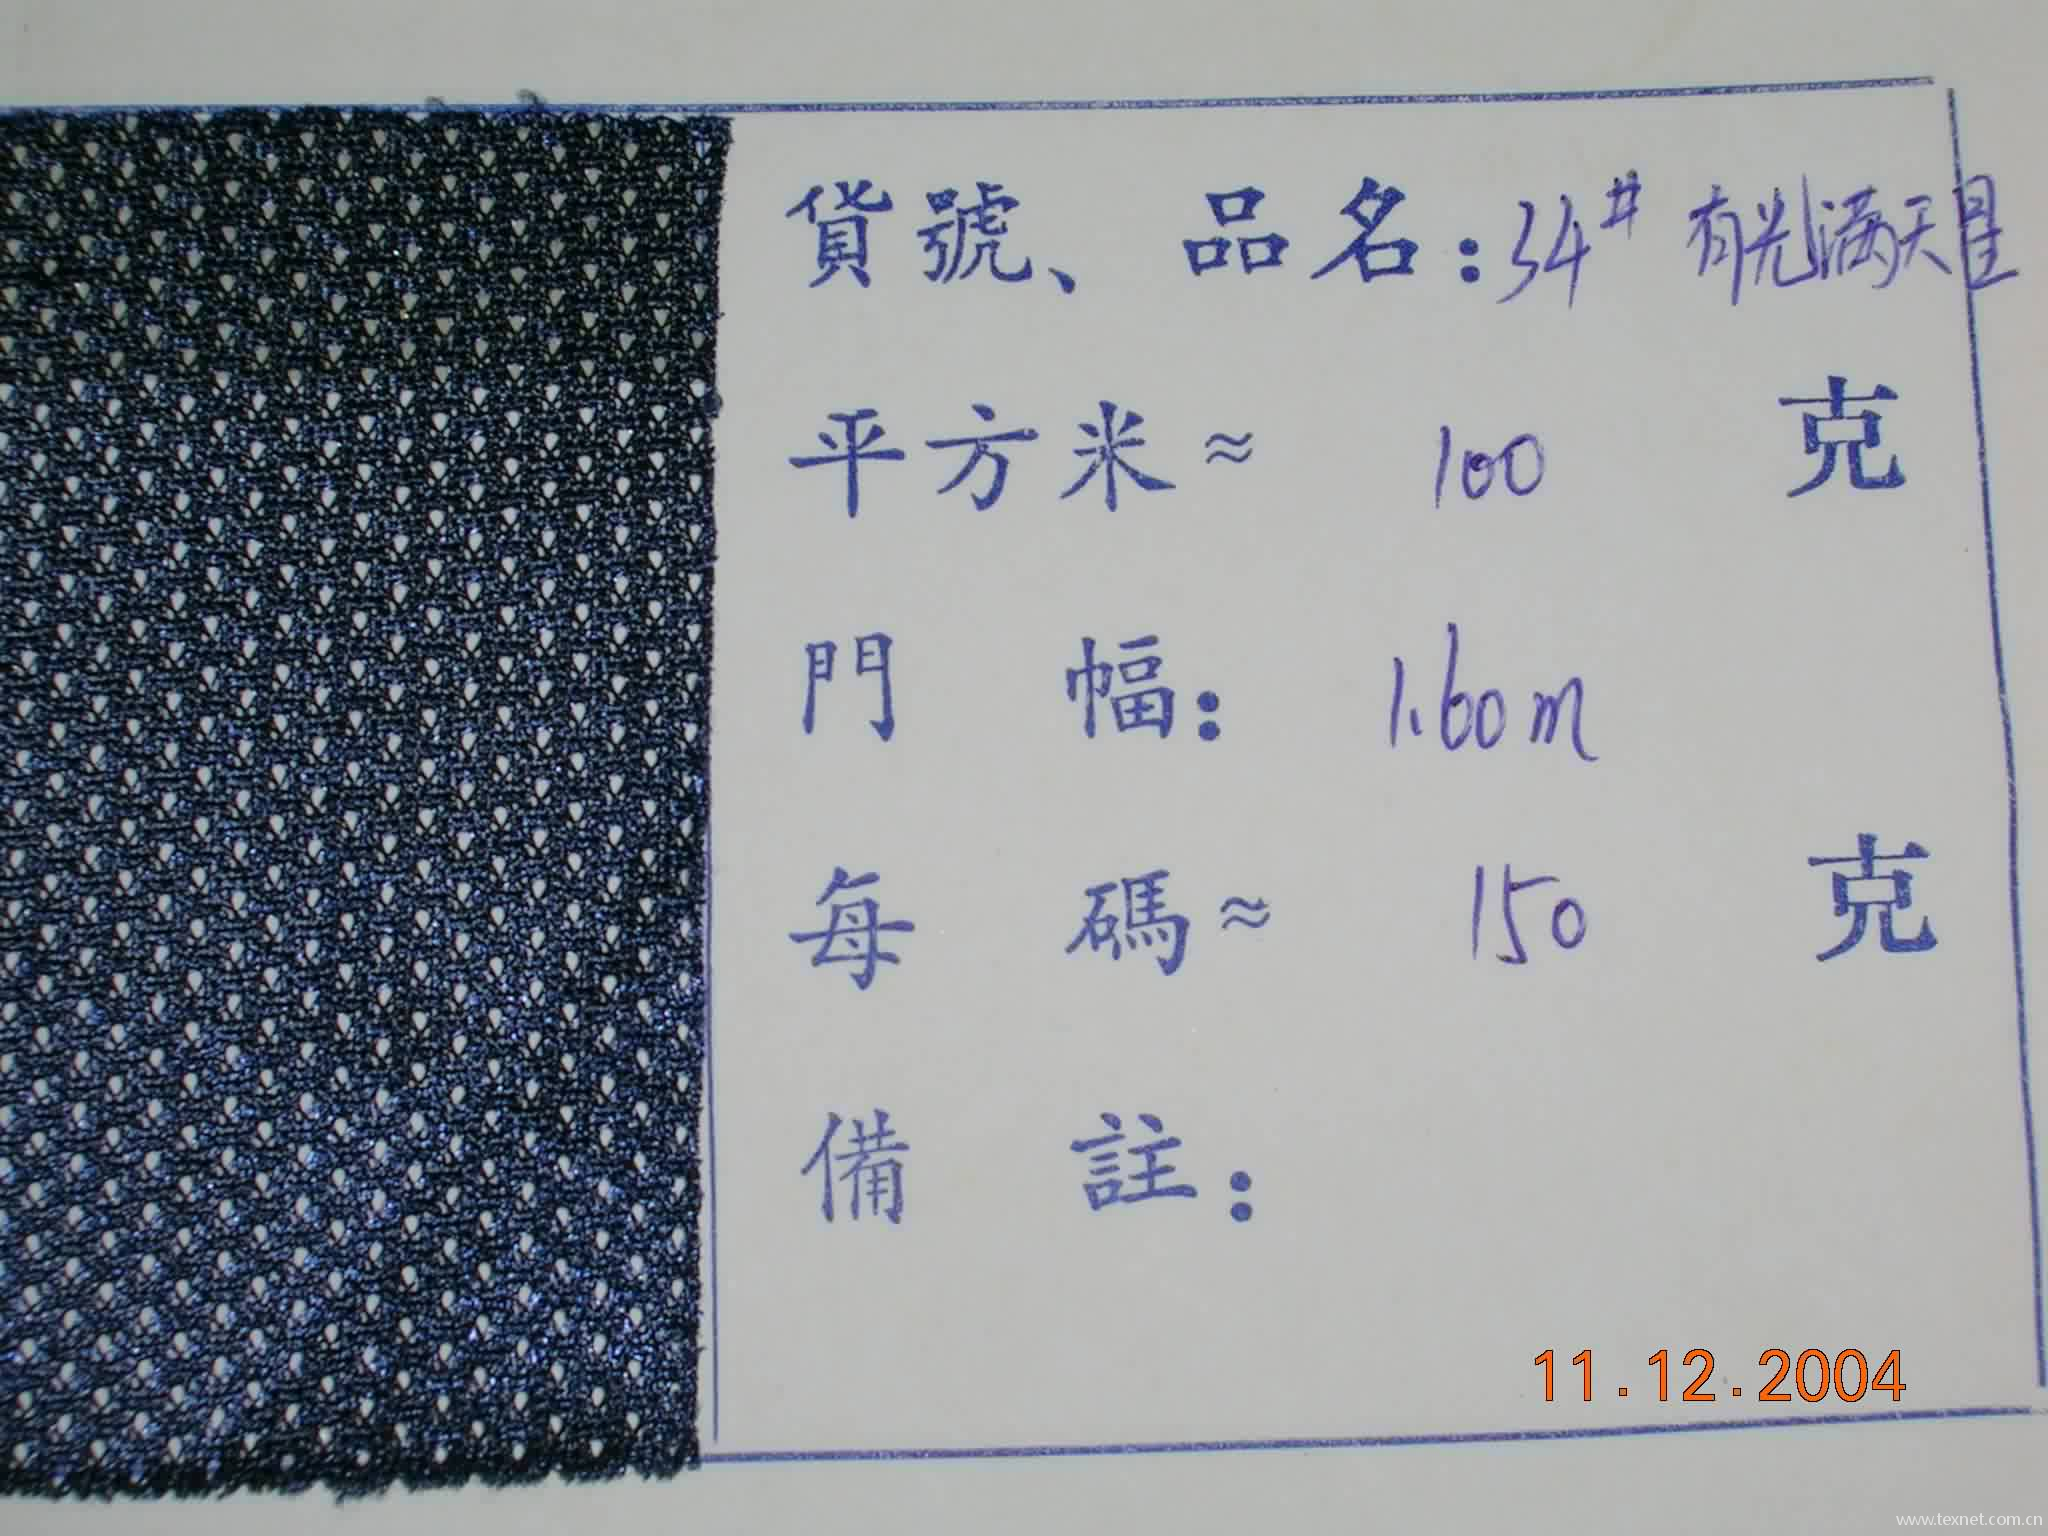 貨號、品名：34# 有光满天星
平方米≈ 100 克
門幅：1.60m
每碼≈ 150 克
備註：
11.12.2004
www.texnet.com.cn